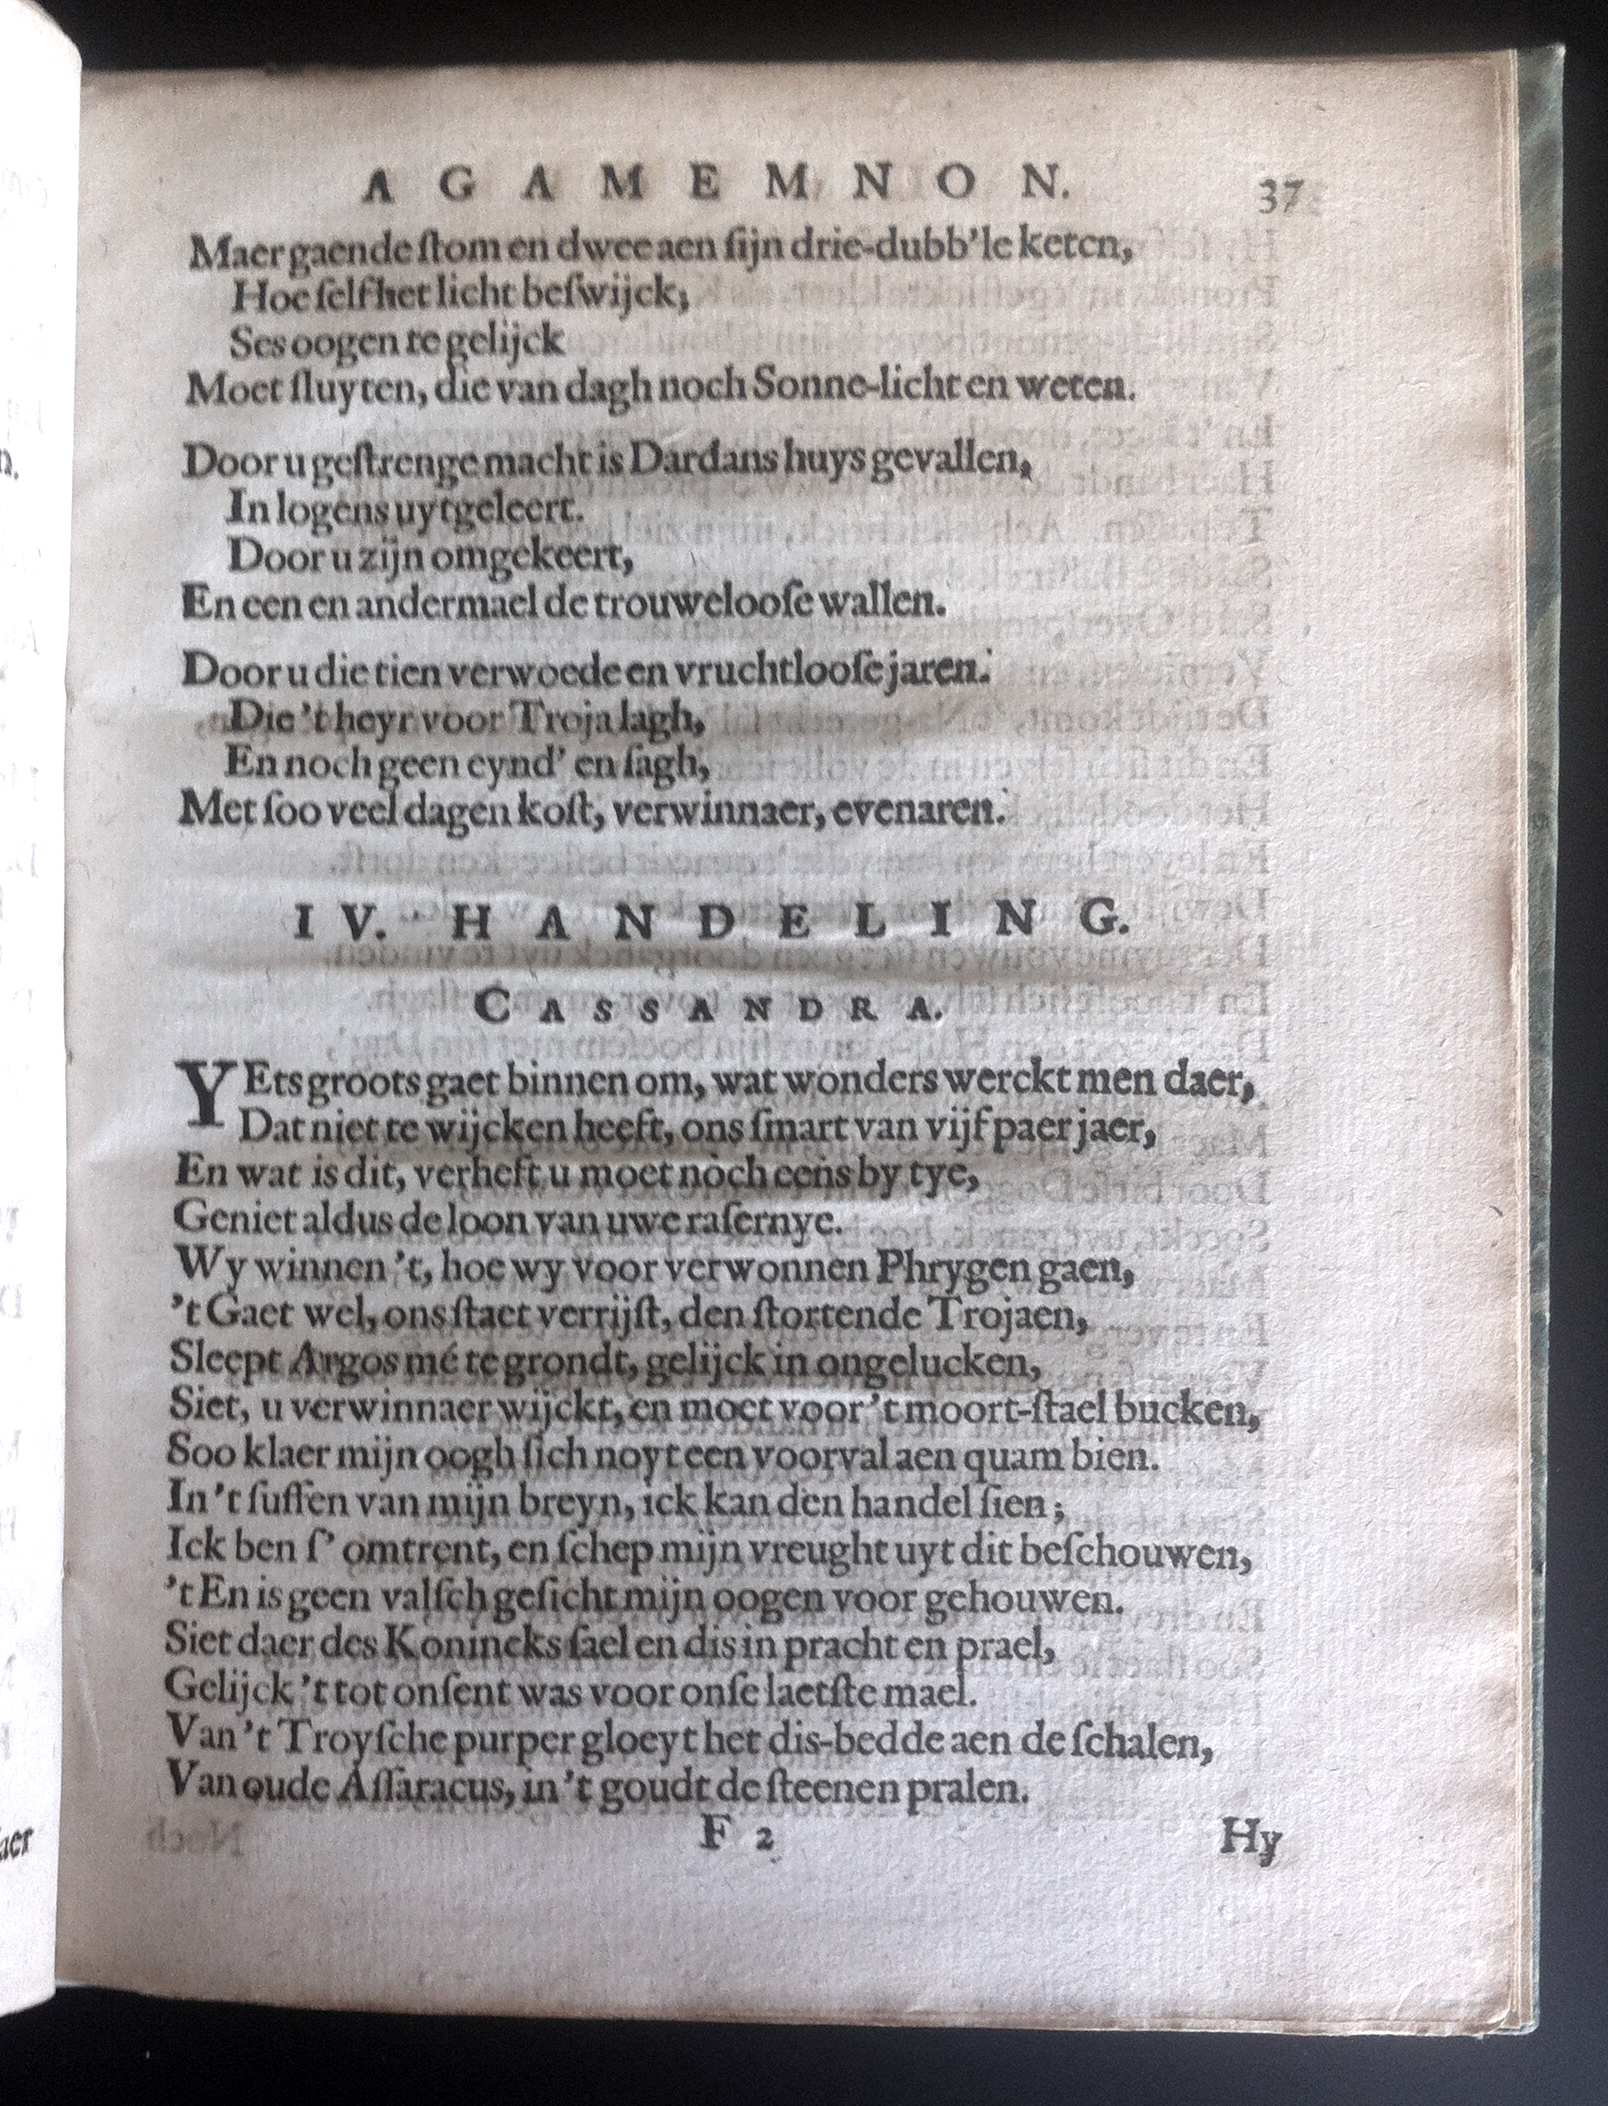 AGAMEMNON. 37
Maer gaende ſtom en dwee aen ſijn drie-dubb'le keten,
Hoe ſelf het licht beſwijck;
Ses oogen te gelijck
Moet ſluyten, die van dagh noch Sonne-licht en weten.
Door u geſtrenge macht is Dardans huys gevallen,
In logens uytgeleert.
Door u zijn omgekeert,
En een en andermael de trouwelooſe wallen.
Door u die tien verwoede en vruchtlooſe jaren.
Die 't heyr voor Troja lagh,
En noch geen eynd' en ſagh,
Met ſoo veel dagen koſt, verwinnaer, evenaren.
IV. HANDELING.
CASSANDRA.
YEts groots gaet binnen om, wat wonders werckt men daer,
Dat niet te wijcken heeft, ons ſmart van vijf paer jaer,
En wat is dit, verheft u moet noch eens by tye,
Geniet aldus de loon van uwe raſernye.
Wy winnen 't, hoe wy voor verwonnen Phrygen gaen,
't Gaet wel, ons ſtaet verrijſt, den ſtortende Trojaen,
Sleept Argos mé te grondt, gelijck in ongelucken,
Siet, u verwinnaer wijckt, en moet voor 't moort-ſtael bucken,
Soo klaer mijn oogh ſich noyt een voorval aen quam bien.
In 't ſuſſen van mijn breyn, ick kan den handel ſien;
Ick ben ſ' omtrent, en ſchep mijn vreught uyt dit beſchouwen,
't En is geen valſch geſicht mijn oogen voor gehouwen.
Siet daer des Konincks ſael en dis in pracht en prael,
Gelijck 't tot onſent was voor onſe laetſte mael.
Van 't Troyſche purper gloeyt het dis-bedde aen de ſchalen,
Van oude Aſſaracus, in 't goudt de ſteenen pralen.
F 2 Hy